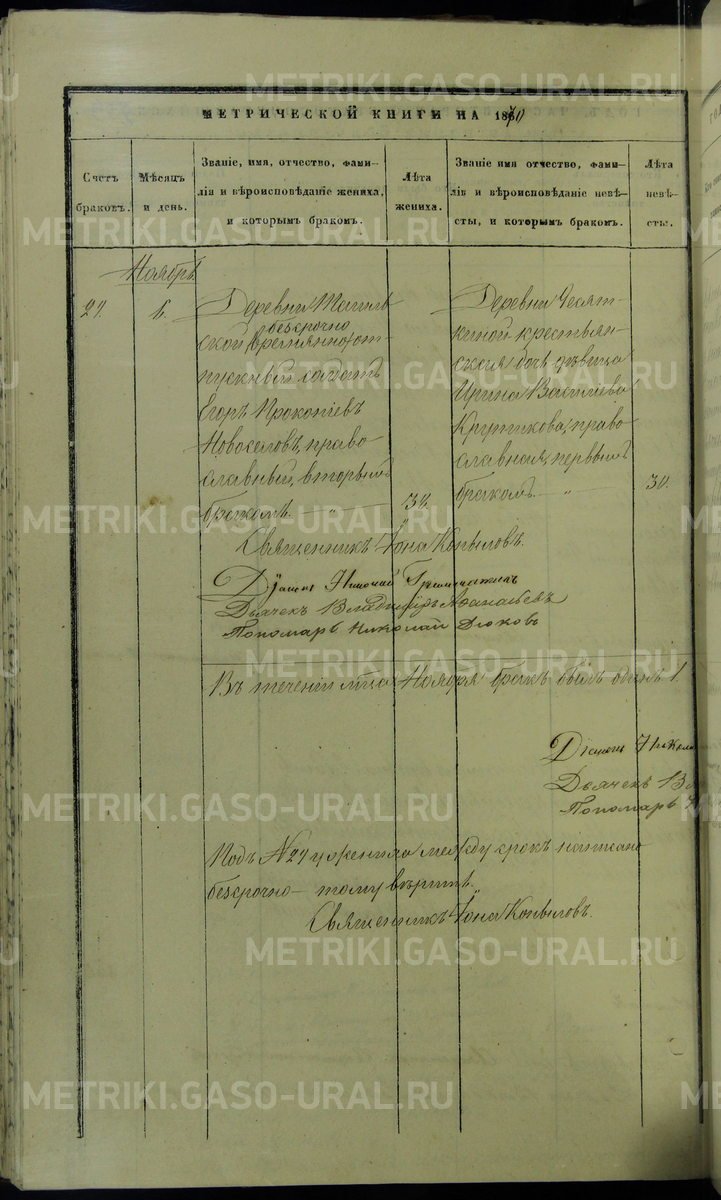 МЕТРИЧЕСКОЙ КНИГИ НА 1870
Счетъ
браковъ.
Мѣсяцъ
и день.
Званіе, имя, отчество, фами-
лія и вѣроисповѣданіе жениха,
и которымъ бракомъ.
Лѣта
жениха.
Званіе имя отчество, фами-
лія и вѣроисповѣданіе невѣ-
сты, и которымъ бракомъ.
Лѣта
невѣ-
сты.
Ноябрь.
6.
Деревни Тагиль
безсрочно
ской временноот-
пускный солдатъ
Егоръ Прокопіевъ
Новоселовъ, право
славный, вторымъ
бракомъ. — „ —
30.
Деревни Десят-
киной крестьян-
ская дочь дѣвица
Ирина Василіева
Крутикова, право
славная, первымъ
бракомъ. — „ —
30.
Священникъ Іона Копыловъ.
Діаконъ Николай
Дьячекъ Владиміръ Афанасьевъ
Пономарь Николай Дюковъ
Въ теченіи мца Ноября бракъ былъ одинъ 1.
Діаконъ Никола
Дьячекъ Вл
Пономарь Н
Подъ № 21 у жениха между срокъ написано
безсрочно — тому вѣрить.
Священникъ Іона Копыловъ.
METRIKI.GASO-URAL.RU